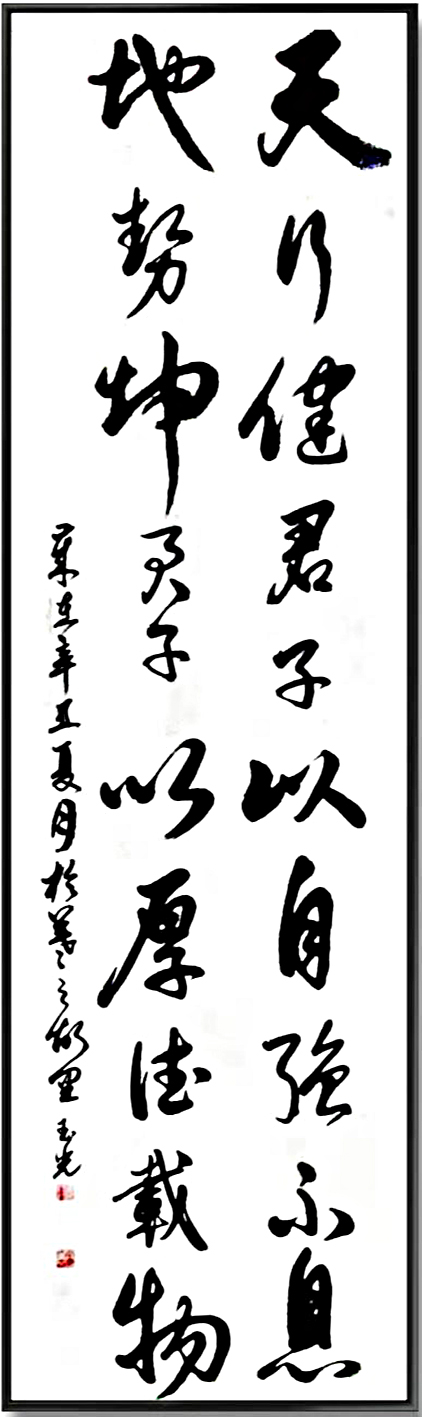 天行健君子以自強不息
地勢坤君子以厚德載物
歲在辛丑夏月於羲之故里玉光